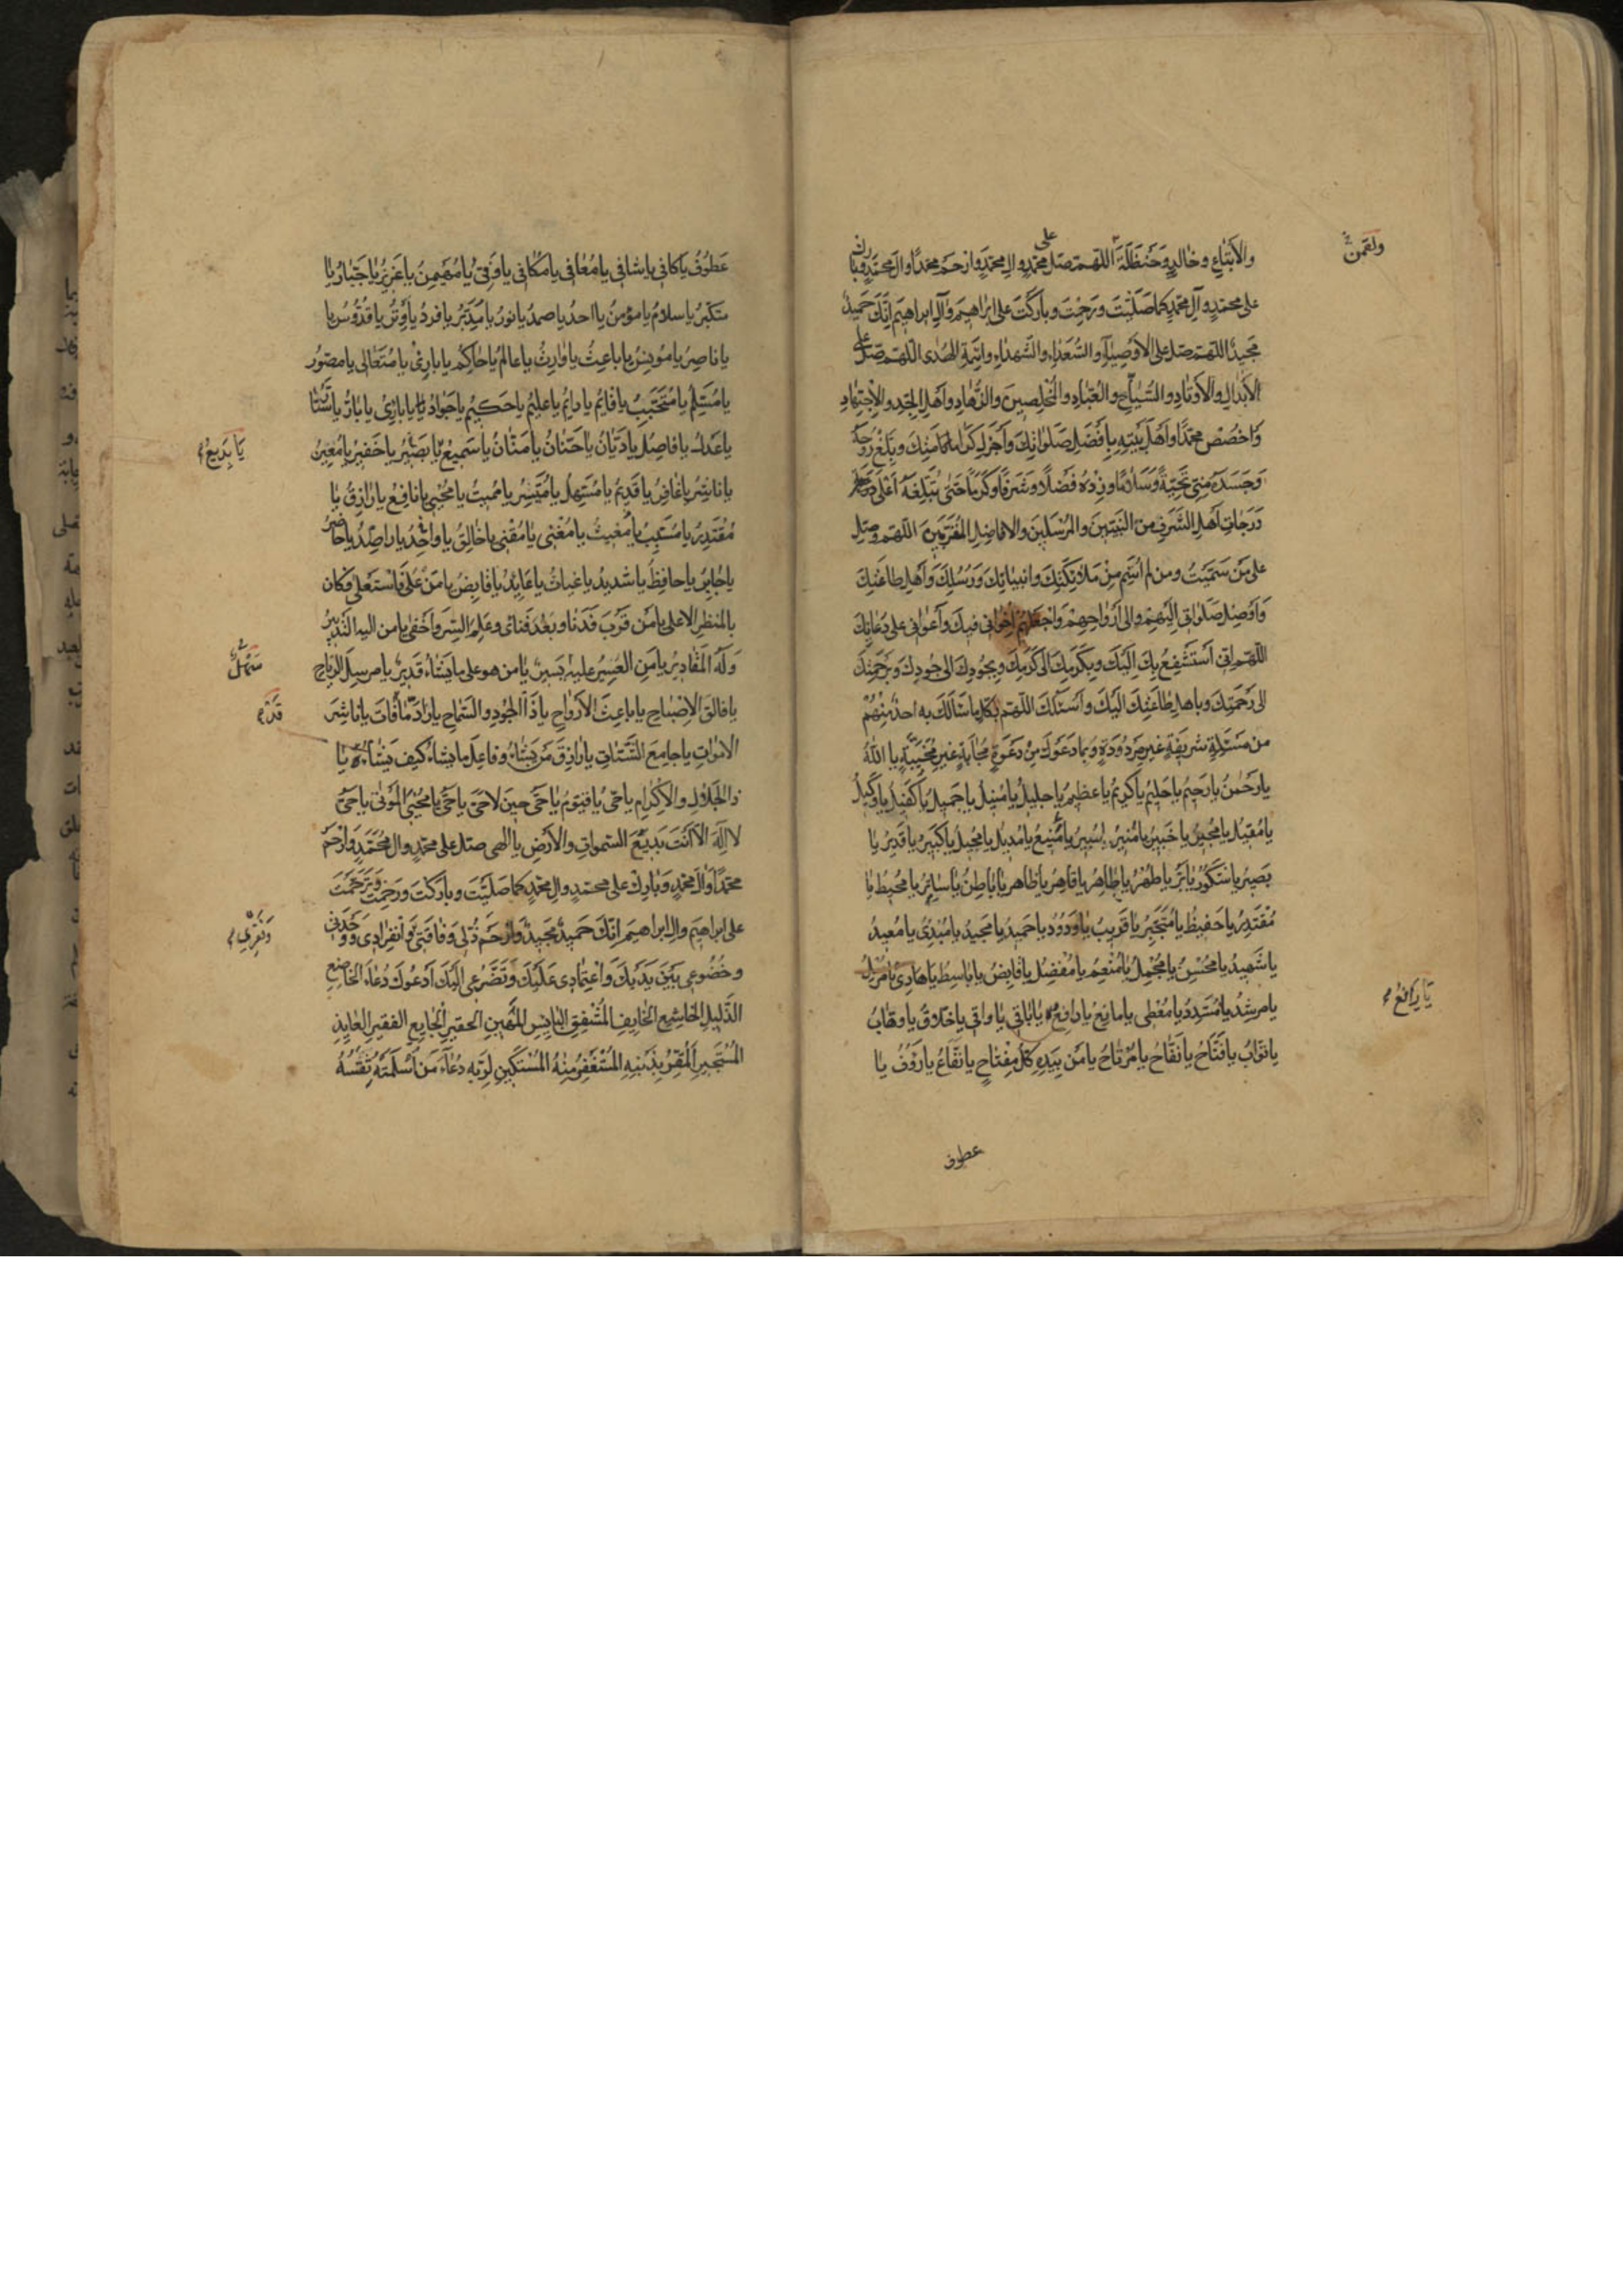 والاتباع وخالد وحنظلة اللهم صل على محمد وال محمد وارحم محمدا وال محمد وبارك
ولقمن
على محمد وآل محمد كما صليت ورحمت وباركت على ابراهيم وآل ابراهيم انك حميد
مجيد اللهم صل على الاوصياء والسعداء والشهداء وائمة الهدى اللهم صل على
الابدال والاوتاد والسياح والعباد والمخلصين والزهاد واهل الجد والاجتهاد
واخصص محمدا واهل بيته بافضل صلواتك واجزل كراماتك وبلغ روحه
وجسده مني تحية وسلاما وزده فضلا وشرفا وكرما حتى تبلغه اعلى درجات
درجات اهل الشرف من النبيين والمرسلين والافاضل المقربين اللهم وصل
على من سميت ومن لم اسم من ملائكتك وانبيائك ورسلك واهل طاعتك
واوصل صلواتي اليهم والى ارواحهم واجعلهم اخواني فيك واعواني على دعائك
اللهم اني استشفع بك اليك وبكرمك الى كرمك وبجودك الى جودك وبرحمتك
الى رحمتك وباهل طاعتك اليك واسئلك اللهم بكل ما سألك به احد منهم
من مسئلة شريفة غير مردودة وبما دعوك من دعوة مجابة غير مخيبة يا الله
يا رحمن يا رحيم يا حليم يا كريم يا عظيم يا جليل يا منيل يا جميل يا كفيل يا وكيل
يا مقيل يا مجير يا خبير يا منير يا مبير يا منيع يا مديل يا محيل يا كبير يا قدير يا
بصير يا شكور يا بر يا طهر يا طاهر يا قاهر يا ظاهر يا باطن يا ساتر يا محيط يا
مقتدر يا حفيظ يا متجبر يا قريب يا ودود يا حميد يا مجيد يا مبدئ يا معيد
يا شهيد يا محسن يا مجمل يا منعم يا مفضل يا قابض يا باسط يا هادي يا مرسل
يا مرشد يا مسدد يا معطي يا مانع يا دافع يا باقي يا واقي يا خلاق يا وهاب
يا رافع
يا تواب يا فتاح يا نفاح يا مرتاح يا من بيده كل مفتاح يا نفاع يا رؤف يا
عطوف
عطوف يا كافي يا شافي يا معافي يا مكافي يا وفي يا مهيمن يا عزيز يا جبار يا
متكبر يا سلام يا مؤمن يا احد يا صمد يا نور يا مدبر يا فرد يا وتر يا قدوس يا
يا ناصر يا مونس يا باعث يا وارث يا عالم يا حاكم يا بارئ يا متعالى يا مصور
يا مسلم يا متحبب يا قائم يا دائم يا عليم يا حكيم يا جواد يا بارئ يا بار يا
يا عدل يا فاصل يا ديان يا حنان يا منان يا سميع يا بصير يا خفير يا معين
يا بديع
يا ناشر يا غافر يا قديم يا مسهل يا ميسر يا مميت يا محيي يا نافع يا رازق يا
مقتدر يا مسبب يا مغيث يا مغني يا مقني يا خالق يا واحد يا راصد يا حاضر
يا جابر يا حافظ يا شديد يا غياث يا عايد يا قابض يا من على فاستعلى فكان
بالمنظر الاعلى يا من قرب فدنا وبعد فنائى وعلم السر واخفى يا من اليه التدبير
وله المقادير يا من العسير عليه يسير يا من هو على ما يشاء قدير يا مرسل الرياح
سهل
يا فالق الاصباح يا باعث الارواح يا ذا الجود والسماح يا راد ما فات يا ناشر
قد
الاموات يا جامع الشتات يا رازق من يشاء وفاعل ما يشاء كيف يشاء يا
ذا الجلال والاكرام يا حي يا قيوم يا حي حين لا حي يا حي يا محيي الموتى يا حي
لا اله الا انت بديع السموات والارض يا الهي صل على محمد وال محمد وارحم
محمدا وآل محمد وبارك على محمد وال محمد كما صليت وباركت ورحمت وترحمت
على ابراهيم وال ابراهيم انك حميد مجيد وارحم ذلي وفاقتي وانفرادي ووحدتي
وخضوعي بين يديك واعتمادي عليك وتضرعي اليك ادعوك دعاء الخاضع
الذليل الخاشع الخايف المشفق البايس المهين الحقير الجايع الفقير العايذ
المستجير المقر بذنبه المستغفر منه المستكين لربه دعاء من اسلمته ثقته